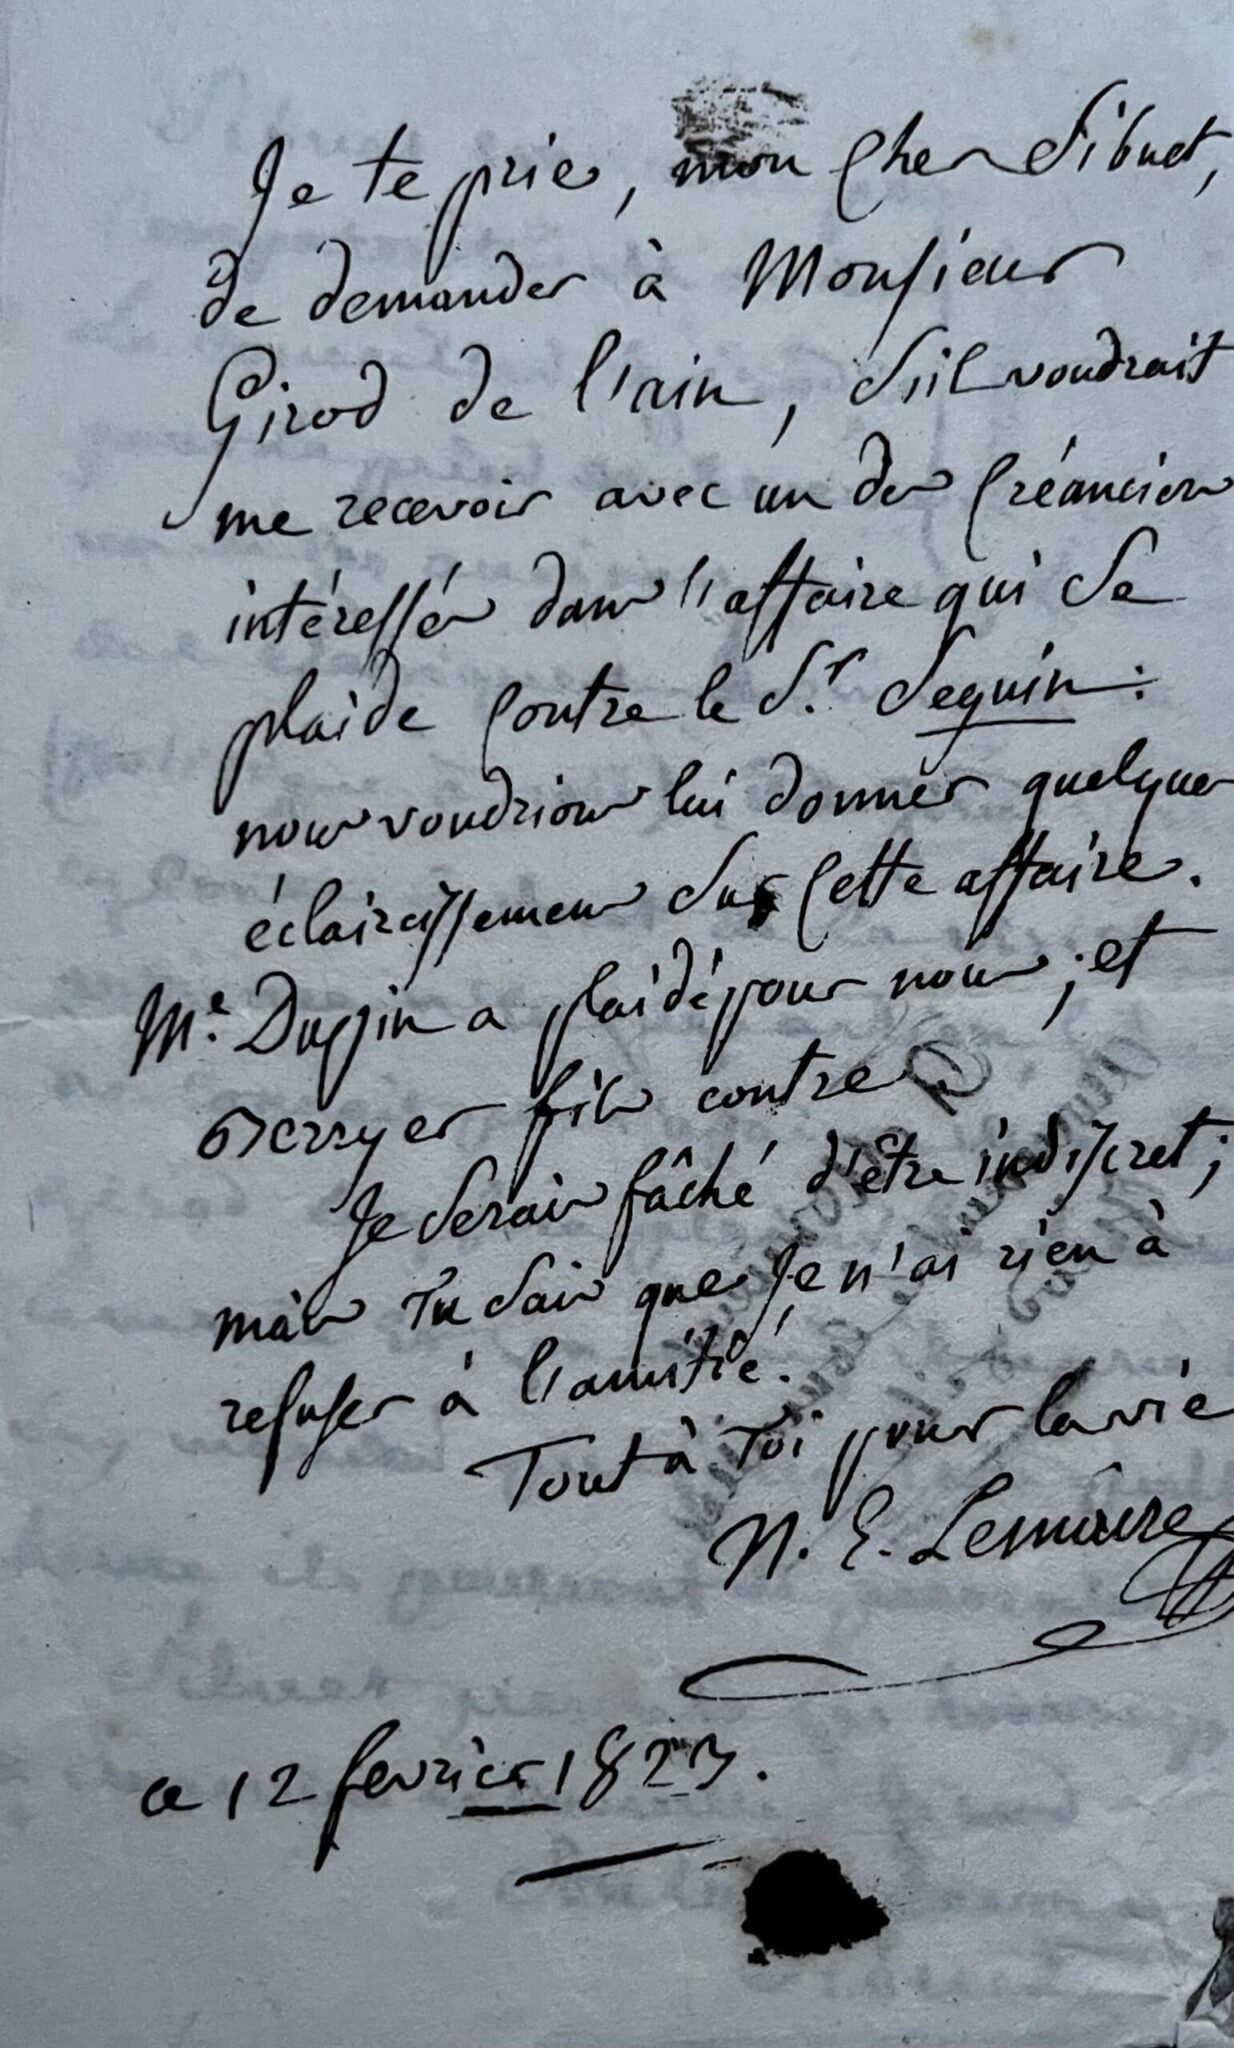 Je te prie, mon cher Sibuet,
de demander à Monsieur
Girod de l'ain, s'il voudrait
me recevoir avec un des créanciers
intéressés dans l'affaire qui se
plaide contre le Sr. Seguin :
nous voudrions lui donner quelques
éclaircissemens sur cette affaire.
Me. Duppin a plaidé pour nous ; et
Berryer fils contre
Je serais fâché d'être indiscret ;
mais tu sais que je n'ai rien à
refuser à l'amitié.
Tout à toi pour la vie
N. E. Lemaire
a 12 fevrier 1823.